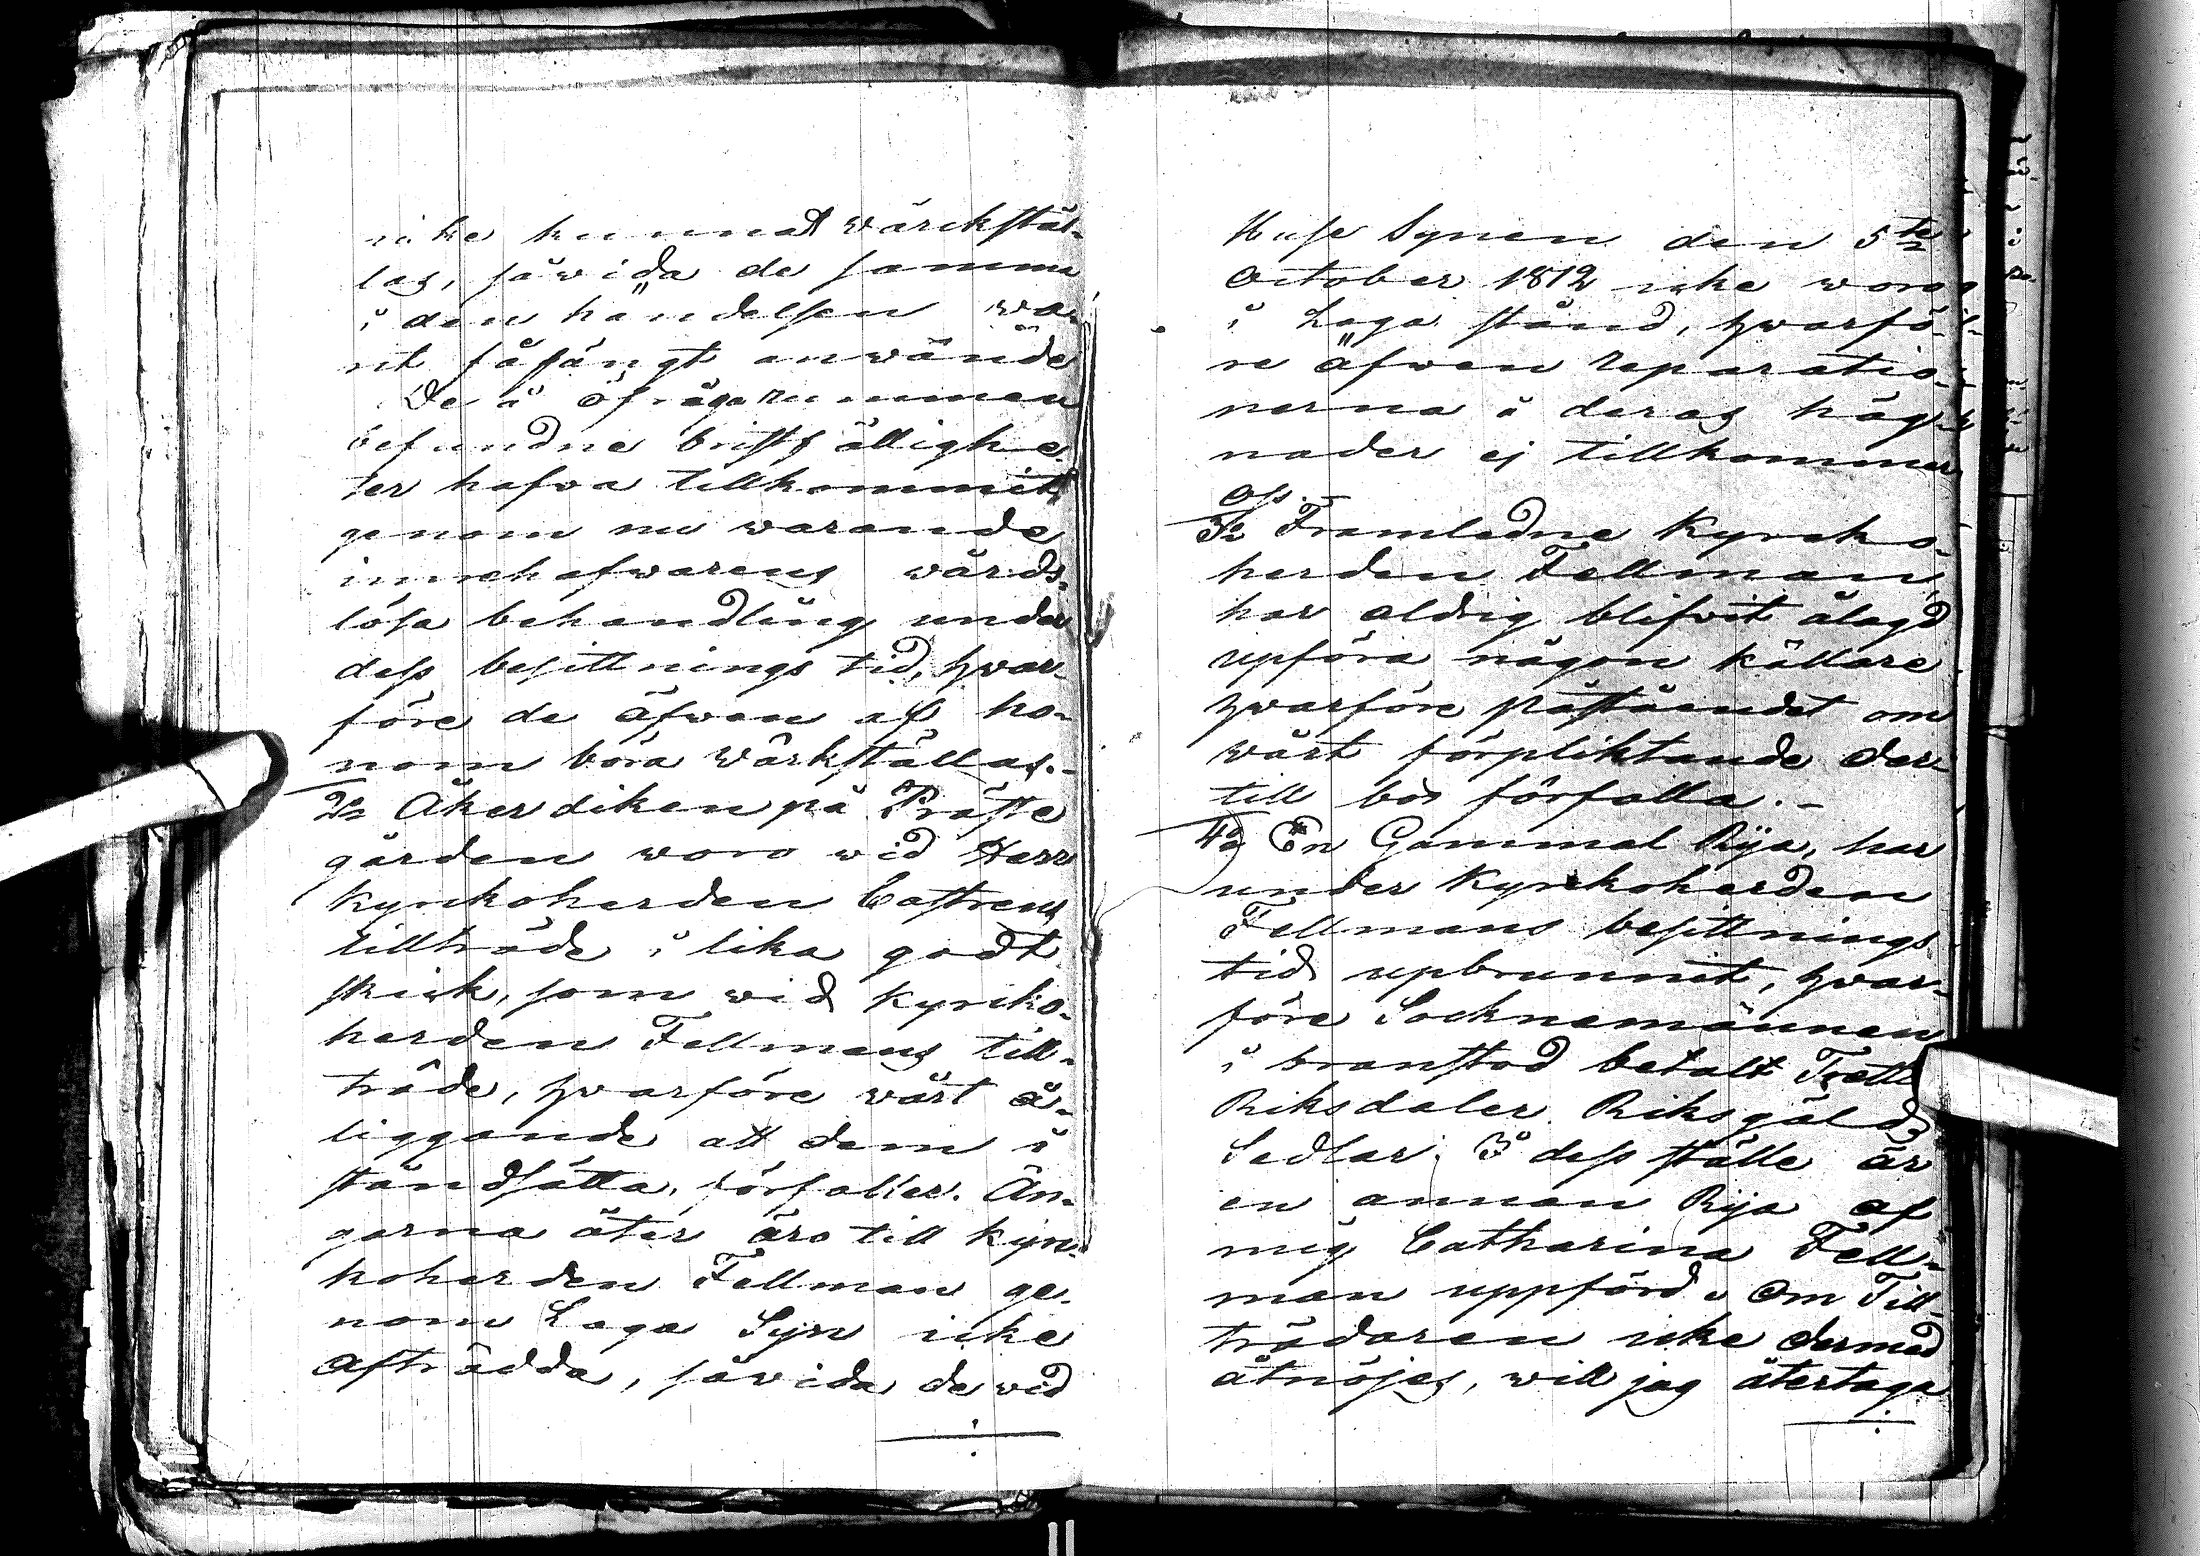 icke kunnat wärckstäl-
las, såwida de samma
i den händelsen wa-
rit fåfängt anwände
De å öfriga rummen
befundne bristfällighe-
ter hafwa tillkommit
genom nu warande
innehafwarens wårds-
lösa behandling under
dess besittnings tid, hwar-
före de äfwen af ho-
nom böra wärkställas.-
2o Åker diken på Präste
gården woro wid Herr
Kyrckoherden Castrens
tillträde i lika godt
skick, som wid Kyrcko-
herden Fellmans till-
träde, hwarföre wårt å-
liggande att dem i
ståndsätta, förfaller. Än-
garna åter äro till Kyrc-
koherden Fellman ge-
nom Laga Syn icke
afträdda, såwida de wid
Huse Synen den 5te
October 1812 icke woro
i Laga stånd, hwarfö-
re äfwen reparatio-
nerna å deras häg-
nader ej tillkommer
oss.-
3o Framledne Kyrcko-
herden Fellman,
har aldrig blifwit ålagd
upföra någon källare
hwarföre påståendet om
wårt förpliktande der-
till bör förfalla.-
4o En Gammal Rija, har
under Kyrckoherden
Fellmans besittnings
tid upbrunnit, hwar-
före Socknemännen
i branstod betalt Trettio
Riksdaler Riksgälds
Sedlar. I dess ställe är
en annan Rija af
mig Catharina Fell-
man uppförd. Om Till-
trädaren icke dermed
åtnöjes, will jag återtaga